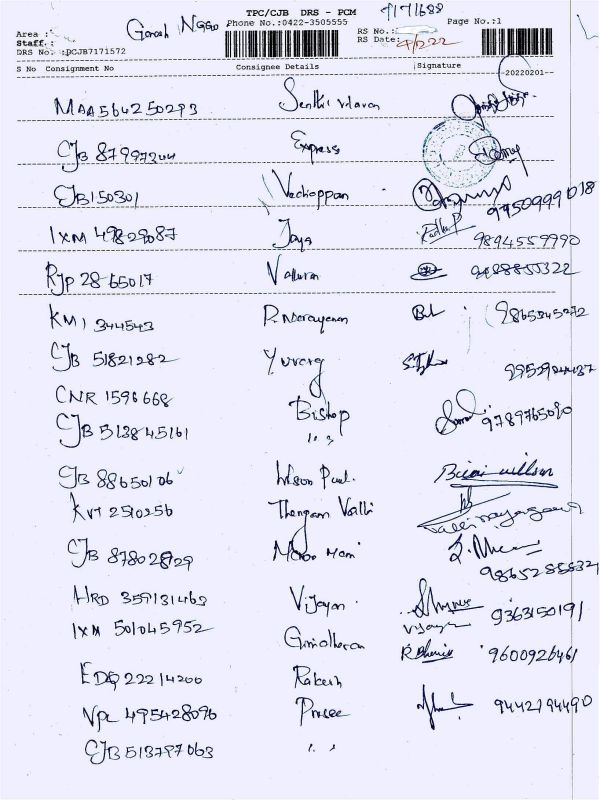 TPC/CJB DRS - PCM
Ganesh Nagar Phone No.:0422-3505555 7171688 Page No.:1
Area : RS No.:
Staff.: RS Date: 4/2/22
DRS No. :PCJB7171572
S No Consignment No Consignee Details Signature 20220201
MAA564250293 Senthi vlavan
CJB 87997344 Express
CJB150301 Vachappan 9750999018
IXM 49829087 Jaya 9894559990
RJP 2865017 Valluvan
KM1 344543 P. Narayanan Bal 9865345272
CJB 51821282 Yuvaraj
CNR 1596668 Bishop 9789765090
CJB 513845161 " "
CJB 88650106 Wilson Paul
KVT 2510256 Thengam Valli
CJB 87802829 Mani 9865288832
HRD 359131463 Vijayan 9363150191
IXM 501045952 Giridharan 9600926461
EDQ 22214200 Rakesh
VPL 495428096 Prasee 9442194490
CJB 513797063 " "